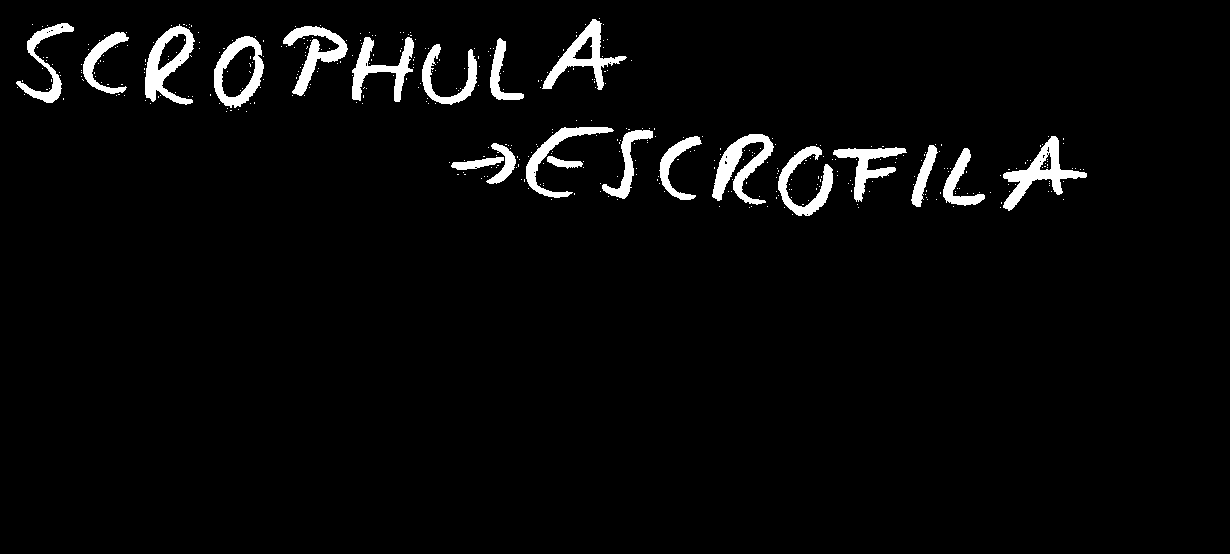 SCROPHULA
→ESCROFILA